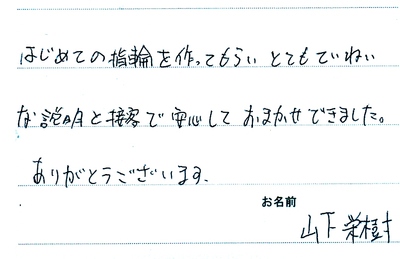 はじめての指輪を作ってもらい とてもていねい
な説明と接客で安心しておまかせできました。
ありがとうございます.
お名前
山下 栄樹